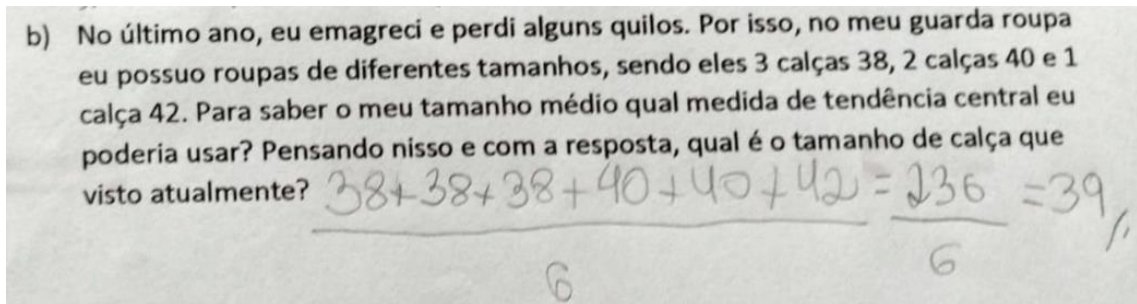 b) No último ano, eu emagreci e perdi alguns quilos. Por isso, no meu guarda roupa
eu possuo roupas de diferentes tamanhos, sendo eles 3 calças 38, 2 calças 40 e 1
calça 42. Para saber o meu tamanho médio qual medida de tendência central eu
poderia usar? Pensando nisso e com a resposta, qual é o tamanho de calça que
visto atualmente? 38+38+38+40+40+42 = 236 = 39,,
6 6